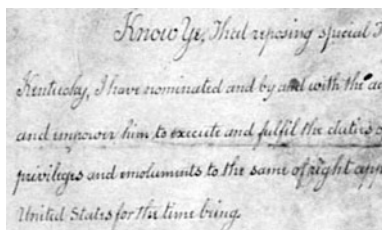 Know Ye, That reposing special
Kentucky, I have nominated and by and with the
and empower him to execute and fulfil the duties
privileges and emoluments to the same of right
United States for the time being.